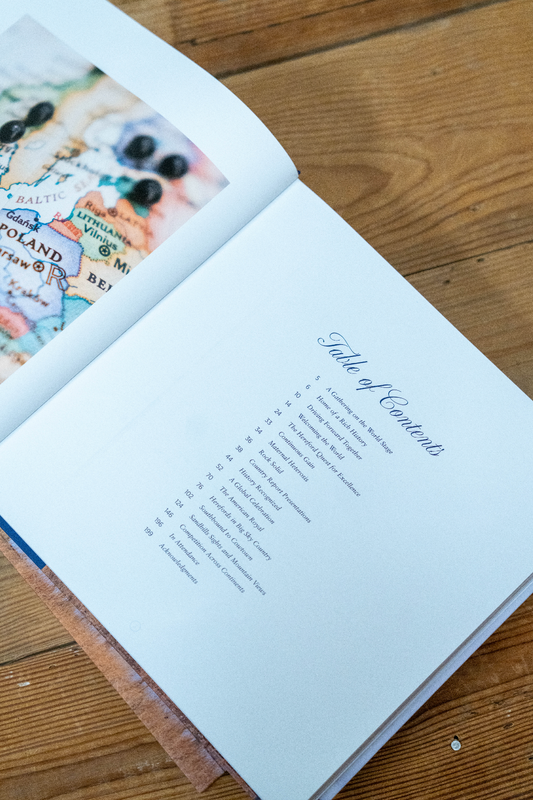 BALTIC
Riga
LITHUANIA
Gdańsk
Vilnius
POLAND
rsaw
Kraków
Table of Contents
5 A Gathering on the World Stage
6 Home of a Rich History
10 Driving Forward Together
14 Welcoming the World
24 The Hereford Quest for Excellence
33 Continuous Gain
34 Maternal Heterosis
36 Rock Solid
38 Country Report Presentations
44 History Recognized
52 A Global Celebration
70 The American Royal
76 Herefords in Big Sky Country
102 Southbound to Cowtown
124 Sandhills Sights and Mountain Views
146 Competition Across Continents
196 In Attendance
199 Acknowledgments